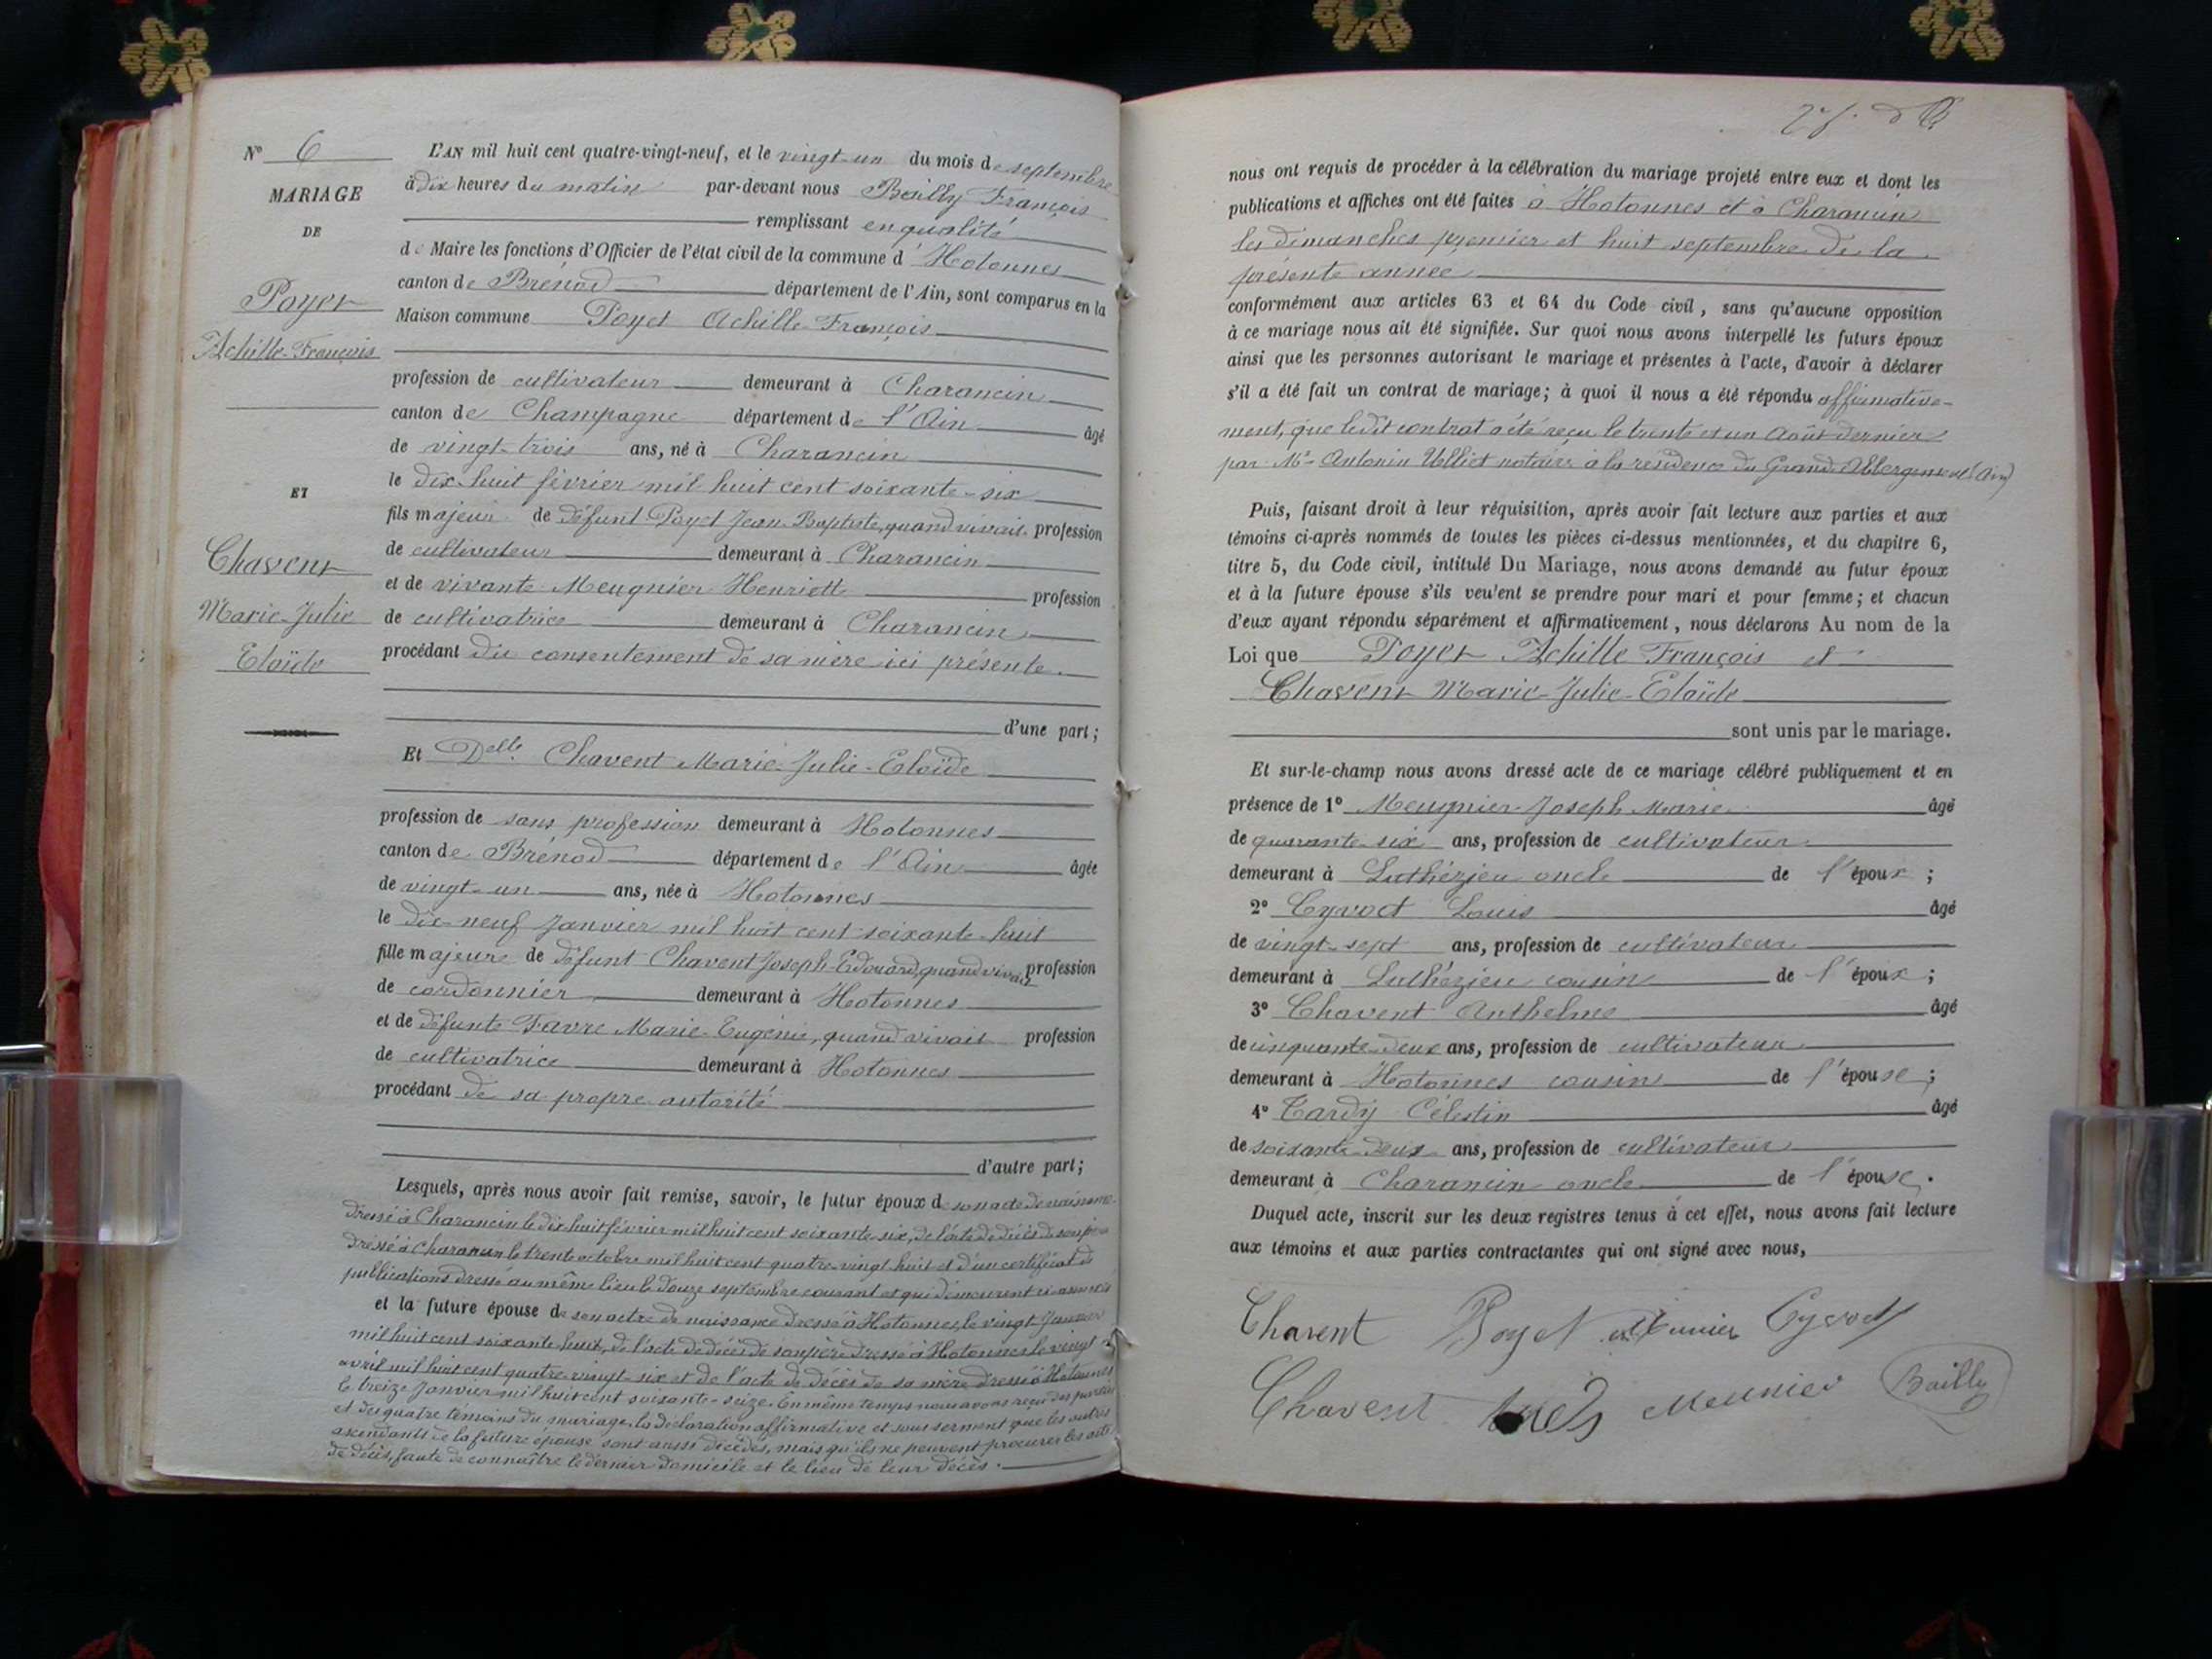 N° 6
MARIAGE
DE
Poyet
Achille-François
ET
Chavent
Marie-Julie
Eloïde
L'AN mil huit cent quatre-vingt-neuf, et le vingt-un du mois de septembre
à dix heures du matin par-devant nous Bailly François
remplissant en qualité
de Maire les fonctions d'Officier de l'état civil de la commune d' Hotonnes
canton de Brénod département de l'Ain, sont comparus en la
Maison commune Poyet Achille-François
profession de cultivateur demeurant à Charancin
canton de Champagne département de l'Ain âgé
de vingt-trois ans, né à Charancin
le dix-huit février mil huit cent soixante-six
fils majeur de défunt Poyet Jean-Baptiste, quand vivait profession
de cultivateur demeurant à Charancin
et de vivante Meugnier Henriette profession
de cultivatrice demeurant à Charancin
procédant du consentement de sa mère ici présente.
d'une part;
Et Delle Chavent Marie-Julie-Eloïde
profession de sans profession demeurant à Hotonnes
canton de Brénod département de l'Ain âgée
de vingt-un ans, née à Hotonnes
le dix-neuf Janvier mil huit cent soixante-huit
fille majeure de défunt Chavent Joseph-Edouard, quand vivait profession
de cordonnier demeurant à Hotonnes
et de défunte Favre Marie-Eugénie, quand vivait profession
de cultivatrice demeurant à Hotonnes
procédant de sa propre autorité
d'autre part;
Lesquels, après nous avoir fait remise, savoir, le futur époux de son acte de naissance
dressé à Charancin le dix-huit février mil huit cent soixante-six, de l'acte de décès de son père
dressé à Charancin le trente octobre mil huit cent quatre-vingt-huit et d'un certificat de
publications dressé au même lieu le douze septembre courant et qui demeurent ci-annexés
et la future épouse de son acte de naissance dressé à Hotonnes, le vingt Janvier
mil huit cent soixante-huit, de l'acte de décès de son père dressé à Hotonnes le vingt
avril mil huit cent quatre-vingt-six et de l'acte de décès de sa mère dressé à Hotonnes
le treize Janvier mil huit cent soixante-seize. En même temps nous avons reçu des parties
et des quatre témoins du mariage, la déclaration affirmative et sous serment que les autres
ascendants de la future épouse sont aussi décédés, mais qu'ils ne peuvent procurer les actes
de décès, faute de connaître le dernier domicile et le lieu de leur décès.
nous ont requis de procéder à la célébration du mariage projeté entre eux et dont les
publications et affiches ont été faites à Hotonnes et à Charancin
les dimanches premier et huit septembre de la
présente année
conformément aux articles 63 et 64 du Code civil, sans qu'aucune opposition
à ce mariage nous ait été signifiée. Sur quoi nous avons interpellé les futurs époux
ainsi que les personnes autorisant le mariage et présentes à l'acte, d'avoir à déclarer
s'il a été fait un contrat de mariage; à quoi il nous a été répondu affirmative-
ment, que ledit contrat a été reçu le trente et un Août dernier
par Me Antonin Ulliet notaire à la résidence du Grand-Abbergement (Ain)
Puis, faisant droit à leur réquisition, après avoir fait lecture aux parties et aux
témoins ci-après nommés de toutes les pièces ci-dessus mentionnées, et du chapitre 6,
titre 5, du Code civil, intitulé Du Mariage, nous avons demandé au futur époux
et à la future épouse s'ils veulent se prendre pour mari et pour femme; et chacun
d'eux ayant répondu séparément et affirmativement, nous déclarons Au nom de la
Loi que Poyet Achille François et
Chavent Marie-Julie-Eloïde
sont unis par le mariage.
Et sur-le-champ nous avons dressé acte de ce mariage célébré publiquement et en
présence de 1° Meugnier Joseph Marie âgé
de quarante-six ans, profession de cultivateur
demeurant à Luthézieu oncle de l'époux;
2° Cyvoct Louis âgé
de vingt-sept ans, profession de cultivateur
demeurant à Luthézieu cousin de l'époux;
3° Chavent Anthelme âgé
de cinquante-deux ans, profession de cultivateur
demeurant à Hotonnes cousin de l'épouse;
4° Tardy Célestin âgé
de soixante-deux ans, profession de cultivateur
demeurant à Charancin oncle de l'épouse.
Duquel acte, inscrit sur les deux registres tenus à cet effet, nous avons fait lecture
aux témoins et aux parties contractantes qui ont signé avec nous,
Chavent Poyet Cyvoct
Chavent Meunier Bailly